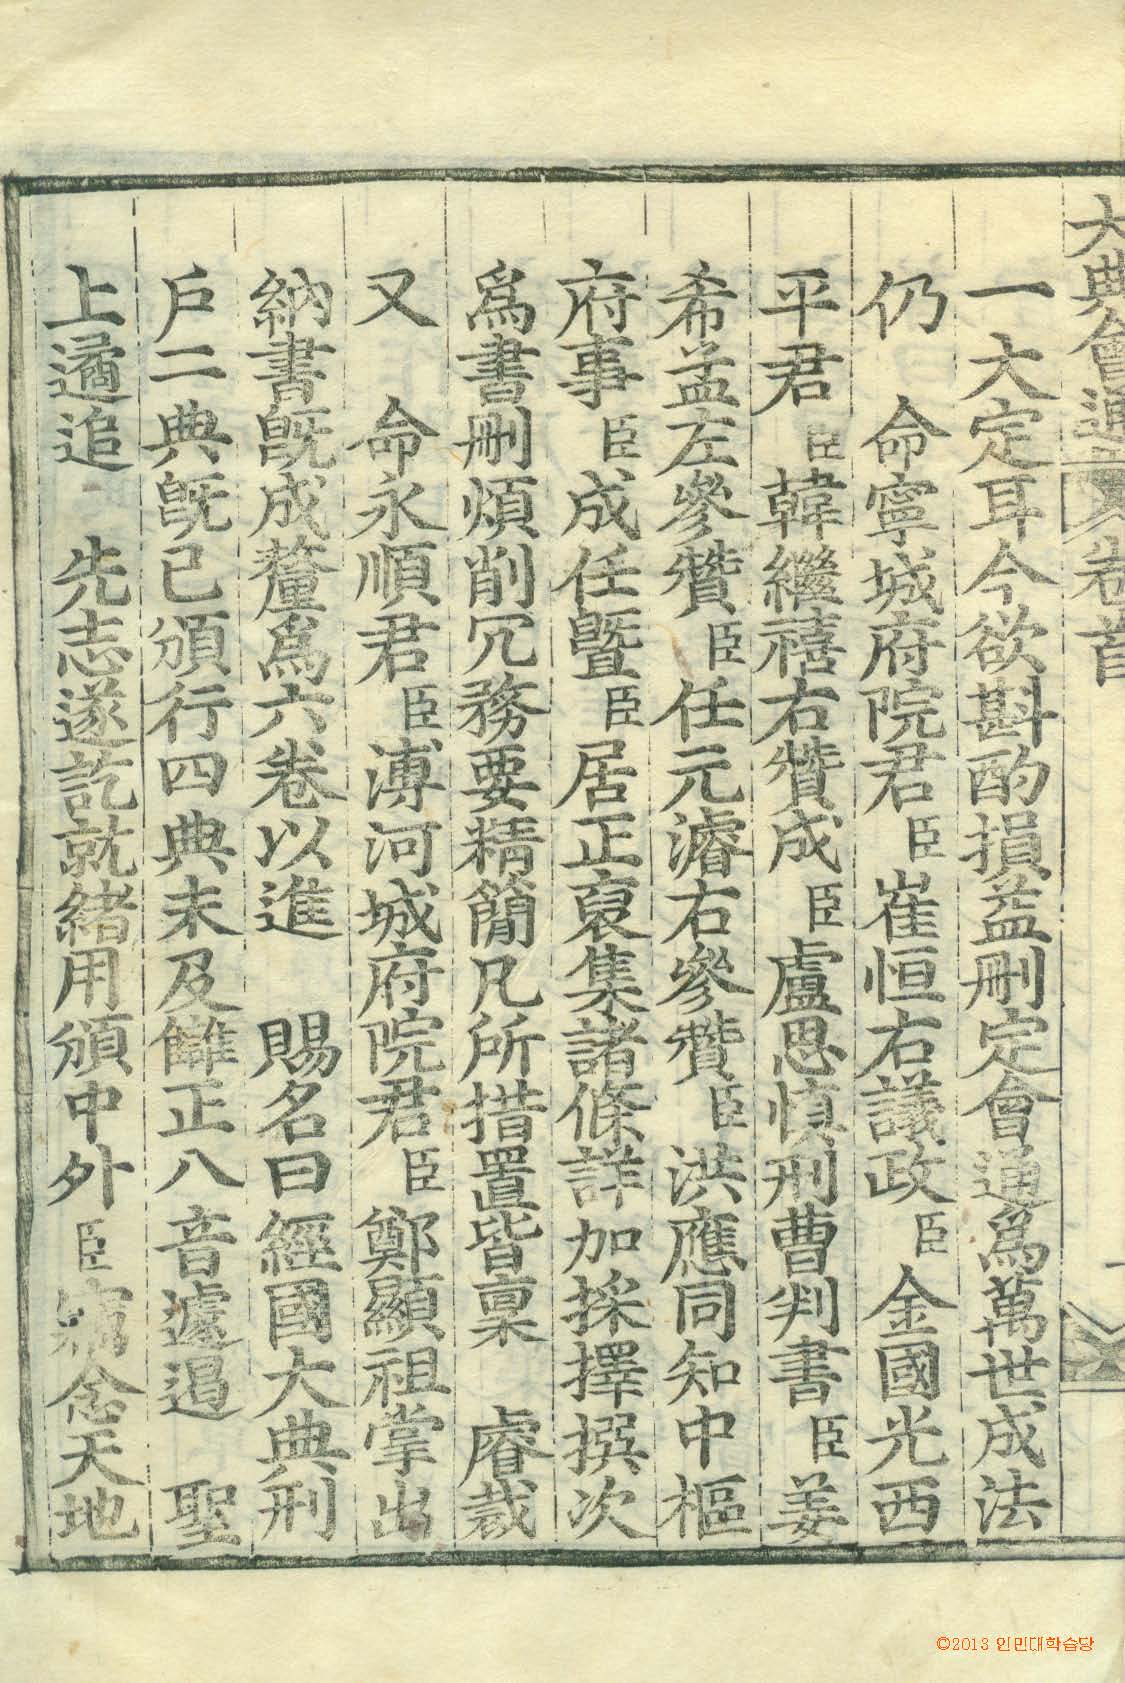 大典會通 卷首
一大定耳今欲斟酌損益刪定會通爲萬世成法
仍 命寧城府院君臣崔恒右議政臣金國光西
平君臣韓繼禧右贊成臣盧思愼刑曹判書臣姜
希孟左參贊臣任元濬右參贊臣洪應同知中樞
府事臣成任曁臣居正裒集諸條詳加採擇撰次
爲書刪煩削冗務要精簡凡所措置皆稟 睿裁
又 命永順君臣溥河城府院君臣鄭顯祖掌出
納書旣成釐爲六卷以進 賜名曰經國大典刑
戶二典旣已頒行四典未及讎正八音遽遏 聖
上遹追 先志遂訖就緖用頒中外臣竊念天地
©2013 인민대학습당